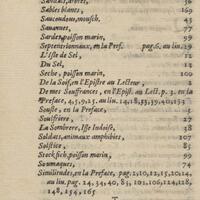 Sables blancs, 169
Saucoudou, mousch. 43
Savannes, 77
Sardes, poisson marin, 99
Septentrionnaux, en la Pref. pag. 6, au liu. 19
L'Isle de Sel, 12
Du Sel, 13
Seche, poisson marin, 100
De la Soif en l'Epistre au Lecteur,
De mes Souffrances, en l'Epist. au Lect. p. 3. en la
Preface, 4, 5, 9, 25. au liu. 14, 18, 33, 39, 40, 153
Souste, en la Preface, 24
Soulfriere, 17
La Sombrere, Isle Indoise, 38
Soldat, animaux amphibies, 107
Solstice, 85
Stockfich, poisson marin, 99
Soumaques, 74
Similitudes, en la Preface, pag. 2, 10, 12, 15, 20, 24,
au liu. pag. 24, 34, 40, 83, 101, 106, 124, 128,
148, 154, 165
T